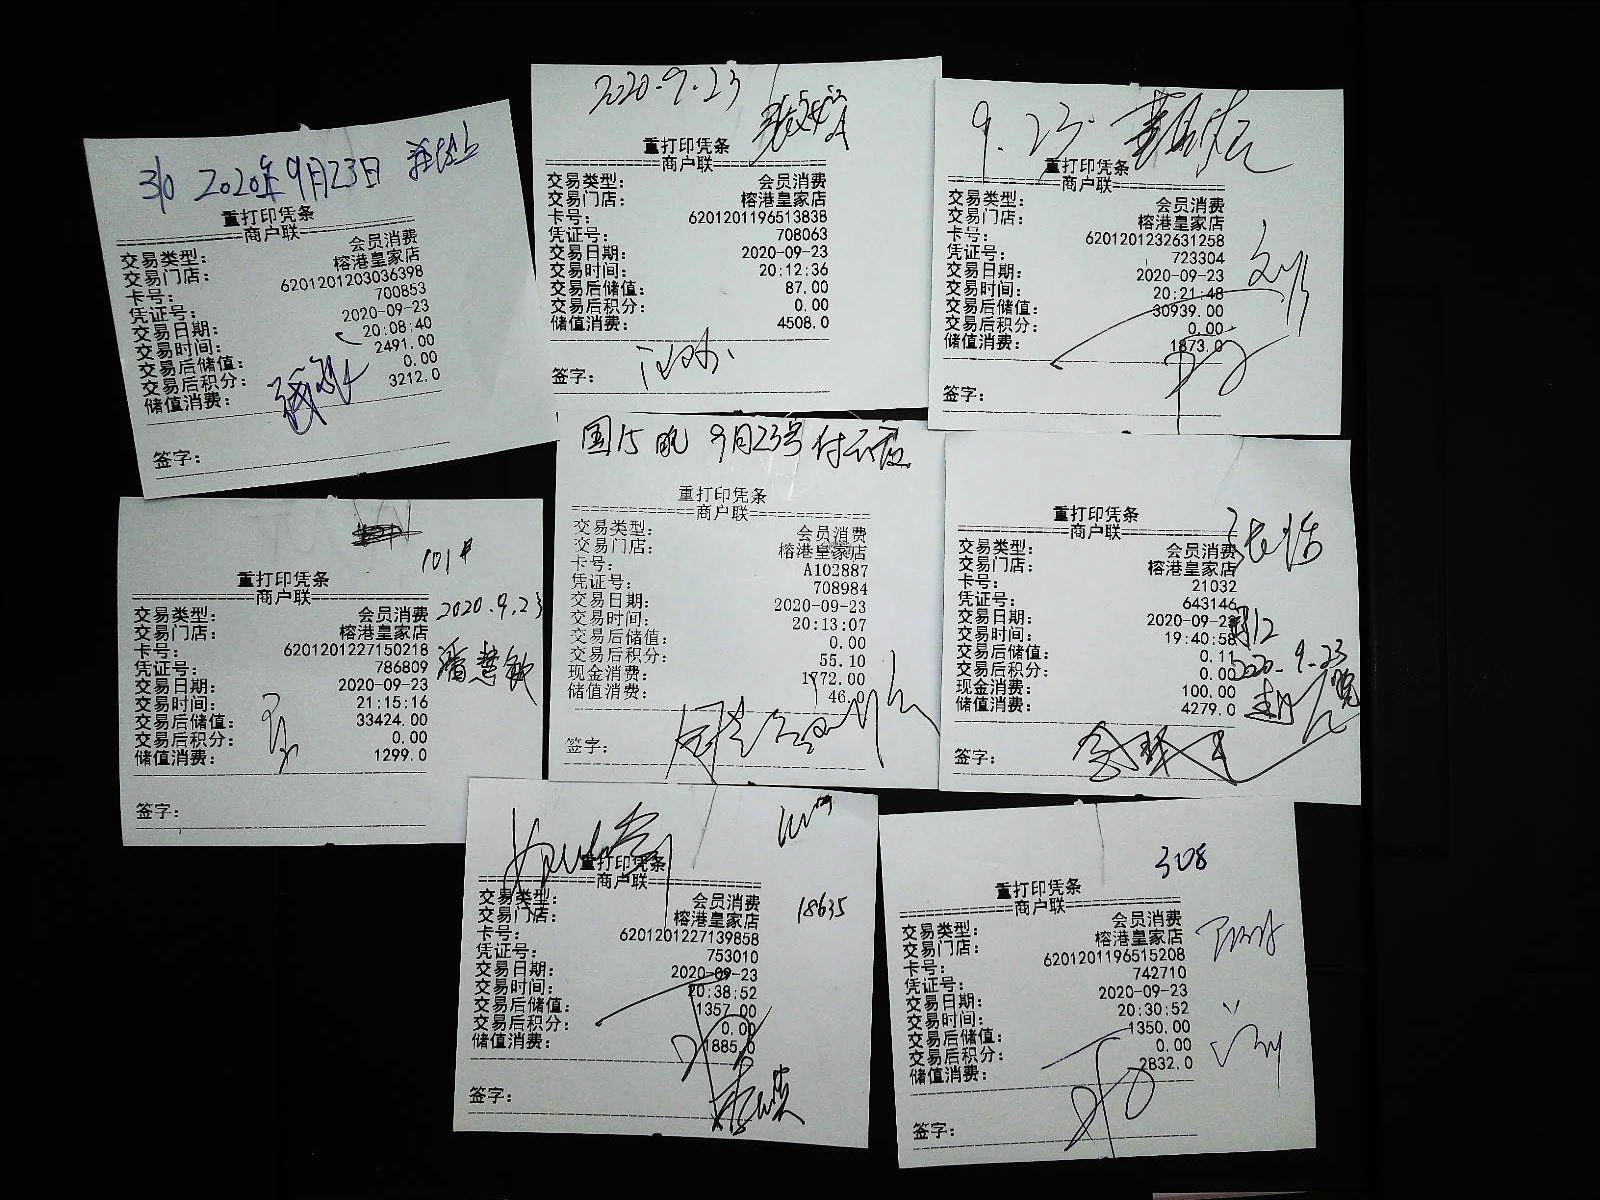 310 2020年9月23日
重打印凭条
商户联
交易类型： 会员消费
交易门店： 榕港皇家店
卡号： 6201201203036398
凭证号： 700853
交易日期： 2020-09-23
交易时间： 20:08:40
交易后储值： 2491.00
交易后积分： 0.00
储值消费： 3212.0
签字：
2020.9.23
重打印凭条
商户联
交易类型： 会员消费
交易门店： 榕港皇家店
卡号： 6201201196513838
凭证号： 708063
交易日期： 2020-09-23
交易时间： 20:12:36
交易后储值： 87.00
交易后积分： 0.00
储值消费： 4508.0
签字：
9.23
重打印凭条
商户联
交易类型： 会员消费
交易门店： 榕港皇家店
卡号： 6201201232631258
凭证号： 723304
交易日期： 2020-09-23
交易时间： 20:21:48
交易后储值： 30939.00
交易后积分： 0.00
储值消费： 1873.0
签字：
101#
重打印凭条
商户联
2020.9.23
交易类型： 会员消费
交易门店： 榕港皇家店
卡号： 6201201227150218
潘慧敏
凭证号： 786809
交易日期： 2020-09-23
交易时间： 21:15:16
交易后储值： 33424.00
交易后积分： 0.00
储值消费： 1299.0
签字：
国15 晚 9月23号 付云霞
重打印凭条
商户联
交易类型： 会员消费
交易门店： 榕港皇家店
卡号： A102887
凭证号： 708984
交易日期： 2020-09-23
交易时间： 20:13:07
交易后储值： 0.00
交易后积分： 55.10
现金消费： 1772.00
储值消费： 46.0
签字：
重打印凭条
商户联
交易类型： 会员消费
交易门店： 榕港皇家店
卡号： 21032
凭证号： 643146
交易日期： 2020-09-23
交易时间： 19:40:58
交易后储值： 0.11
交易后积分： 0.00
2020.9.23
现金消费： 100.00
储值消费： 4279.0
签字：
重打印凭条
商户联
18635
交易类型： 会员消费
交易门店： 榕港皇家店
卡号： 6201201227139858
凭证号： 753010
交易日期： 2020-09-23
交易时间： 20:38:52
交易后储值： 1357.00
交易后积分： 0.00
储值消费： 1885.0
签字：
308
重打印凭条
商户联
交易类型： 会员消费
交易门店： 榕港皇家店
卡号： 6201201196515208
凭证号： 742710
交易日期： 2020-09-23
交易时间： 20:30:52
交易后储值： 1350.00
交易后积分： 0.00
储值消费： 2832.0
签字：